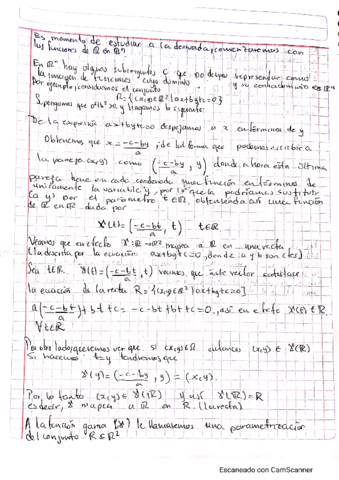 Es momento de estudiar a la derivada, comenzaremos con
las funciones de ℝ en ℝⁿ
En ℝⁿ hay algunos subconjuntos C que podemos representar como
la imagen de funciones cuyo dominio y su contradominio es ℝⁿ
Por ejemplo, consideremos el conjunto
R: {(x,y)∈ℝ² | ax+by+c=0}
Supongamos que a≠0 y hagamos lo siguiente:
De la expresión ax+by+c=0 despejamos a x en términos de y
Obtenemos que x = -c-by/a, de tal forma que podemos escribir a
la pareja (x,y) como (-c-by/a, y) donde ahora esta última
pareja tiene en cada coordenada una función en términos de
únicamente la variable y, por lo que la podríamos sustituir
(a y) por el parámetro t∈ℝ, obteniendo así una función
de ℝ en ℝ² dada por
γ(t) = (-c-bt/a, t) t∈ℝ
Veamos que en efecto γ:ℝ→ℝ² mapea a ℝ en una recta
(la descrita por la ecuación ax+by+c=0, donde a y b son ctes)
Sea t∈ℝ. γ(t) = (-c-bt/a, t) veamos que este vector satisface
la ecuación de la recta R = {(x,y)∈ℝ² | ax+by+c=0}
a(-c-bt/a) + bt + c = -c-bt+bt+c = 0, así en efecto γ(t)∈R
∀t∈ℝ
Por otro lado, queremos ver que si (x,y)∈R entonces (x,y)∈γ(ℝ)
Si hacemos t=y tendremos que
γ(y) = (-c-by/a, y) = (x,y).
Por lo tanto (x,y)∈γ(ℝ) y así γ(ℝ)=R
es decir, γ mapea a ℝ en R (la recta)
A la función gama (γ) le llamaremos una parametrización
del conjunto R⊆ℝ²
Escaneado con CamScanner